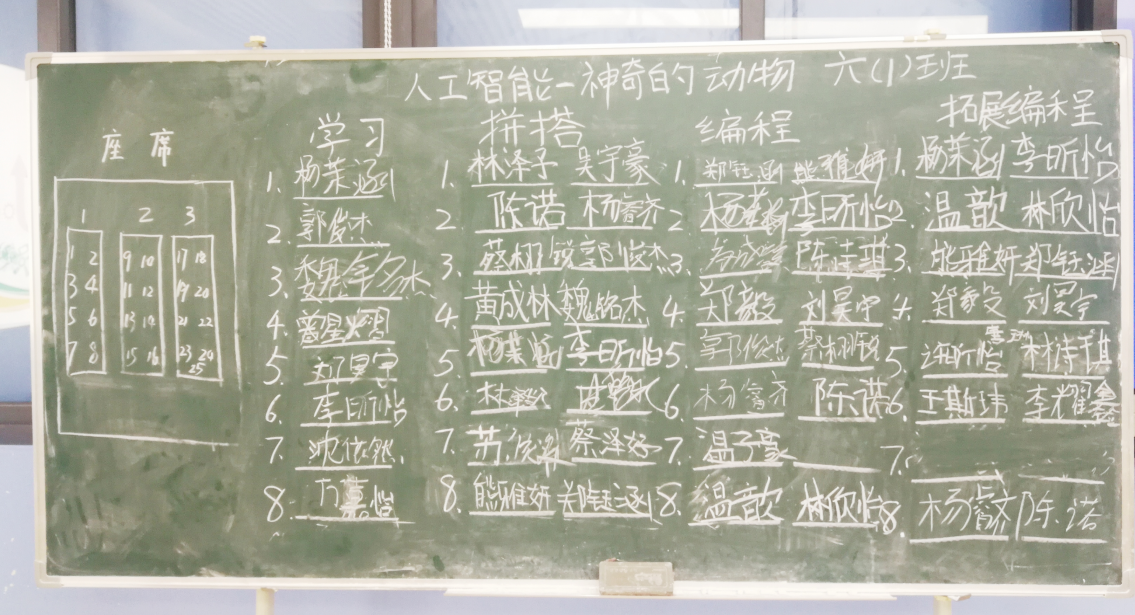 人工智能-神奇的动物 六(1)班
座席
学习
拼搭
编程
拓展编程
1 2 3
1 2 9 10 17 18
3 4 11 12 19 20
5 6 13 14 21 22
7 8 15 16 23 24
25
1. 杨茉涵
2. 郭俊杰
3. 魏
4. 曾星
5. 刘昊宇
6. 李昕怡
7. 沈依然
8. 嘉怡
1. 林泽子 吴宇豪
2. 陈诺 杨睿齐
3. 蔡栩锐 郭俊杰
4. 黄成林 魏铭杰
5. 杨茉涵 李昕怡
6. 林
7. 苏 蔡泽妤
8. 熊雅妍 郑钰涵
1. 郑钰涵 熊雅妍
2. 杨茉涵 李昕怡
3. 陈诗琪
4. 郑毅 刘昊宇
5. 郭俊杰 蔡栩锐
6. 杨睿齐 陈诺
7. 温子豪
8. 温歆 林欣怡
1. 杨茉涵 李昕怡
2. 温歆 林欣怡
3. 熊雅妍 郑钰涵
4. 郑毅 刘昊宇
5. 林诗琪
6. 王斯玮 李耀鑫
7.
8. 杨睿齐 陈诺